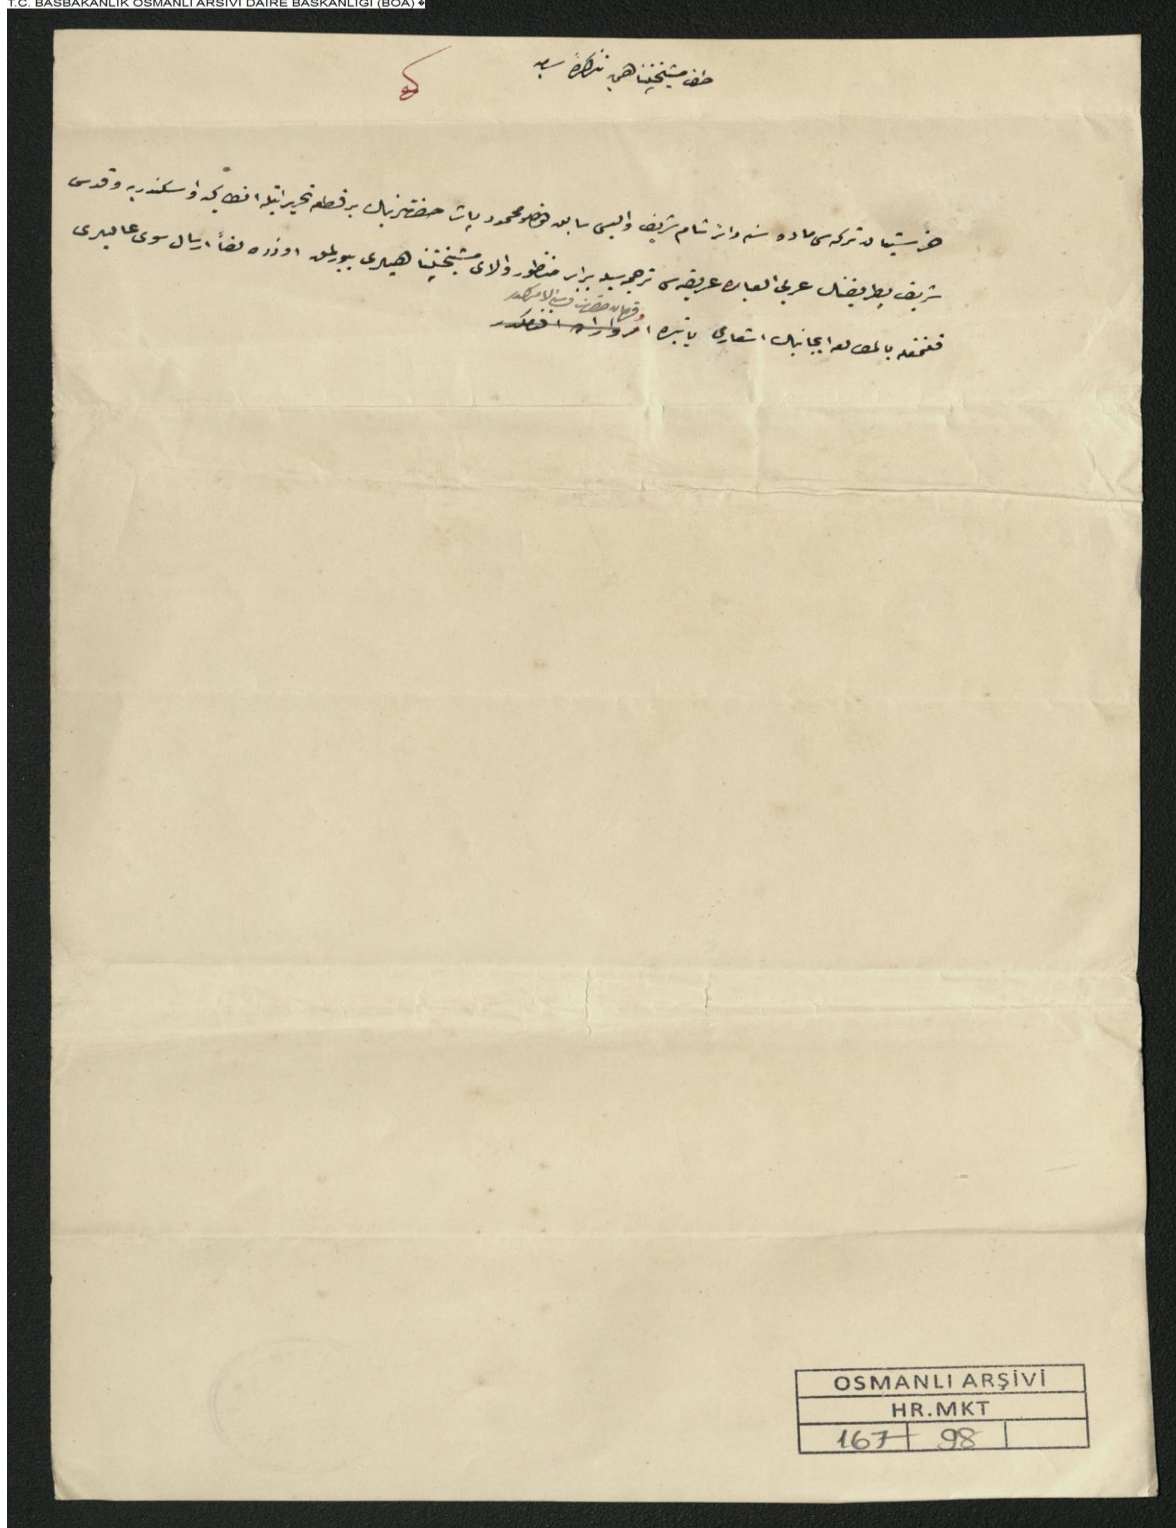 T.C. BAŞBAKANLIK OSMANLI ARŞİVİ DAİRE BAŞKANLIĞI (BOA)
طرف مشيختپناهی يه تذكرۀ سامیه
خرستيان تركه سی ماده سنه دائر شام شريف واليسی سابق محمود پاشا حضرتلرينك بر قطعه تحريراتيله انطاكيه و اسكندريه و قدس
شريف بطريقنك عربی العباره عريضه سی ترجمه سيله برابر منظور والای مشيختپناهيلری بيورلمق اوزره لفاً ارسال سوی عاليلری
قلنمغله بالمطالعه ايجابنك اشعاری بابنده امر و اراده افندمكدر
OSMANLI ARŞİVİ
HR.MKT
167 98